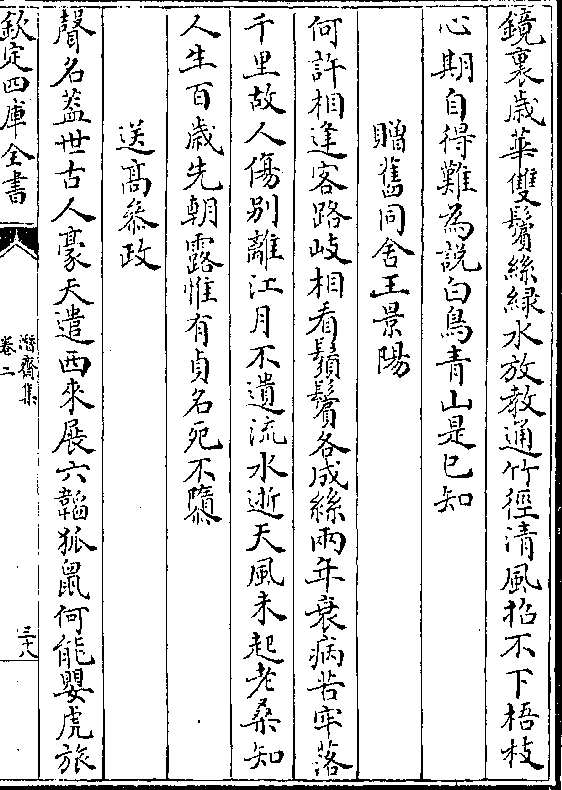 鏡裏歲華雙鬢絲綠水放教通竹徑清風招不下梧枝
心期自得難為說白鳥青山是已知
贈舊同舍王景陽
何許相逢客路岐相看鬚鬢各成絲兩年衰病苦牢落
千里故人傷別離江月不遺流水逝天風未起老桑知
人生百歲先朝露惟有貞名死不隳
送高叅政
聲名葢世古人豪天遣西來展六韜狐鼠何能嬰虎旅
欽定四庫全書
潛齋集
卷二
三十八